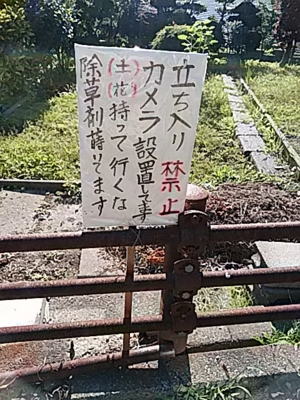 立ち入り禁止
カメラ設置して〼
(土)(花)持って行くな
除草剤蒔いてます